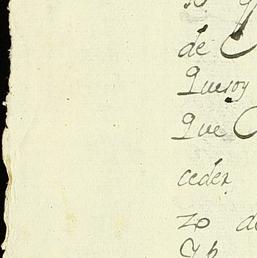 de C
Quesoy
que C
ceder
zo de